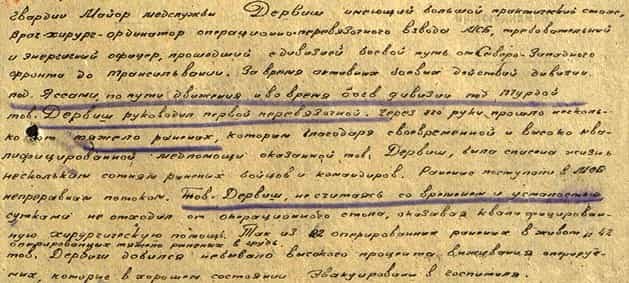 Гвардии Майор медслужбы Дервиш имеющий большой практический стаж,
врач-хирург-ординатор операционно-перевязочного взвода МСБ, требовательный
и энергичный офицер, прошедший с дивизией боевой путь от Северо-Западного
фронта до Трансильвании. За время активных боевых действий дивизии
под Яссами, по пути движения и во время боев дивизии под Турдой
тов. Дервиш руководил первой перевязочной. Через его руки прошло несколь-
ко сот тяжело раненых, которым благодаря своевременной и высоко ква-
лифицированной медпомощи оказанной тов. Дервиш, была спасена жизнь
нескольким сотням раненых бойцов и командиров. Раненые поступали в МСБ
непрерывным потоком. Тов. Дервиш, не считаясь со временем и усталостью
сутками не отходил от операционного стола, оказывая квалифицирован-
ную хирургическую помощь. Так из 82 оперированных раненых в живот и 42
оперированных тяжело раненых в грудь.
тов. Дервиш добился небывало высокого процента выживания оперируе-
мых, которые в хорошем состоянии эвакуированы в госпиталя.